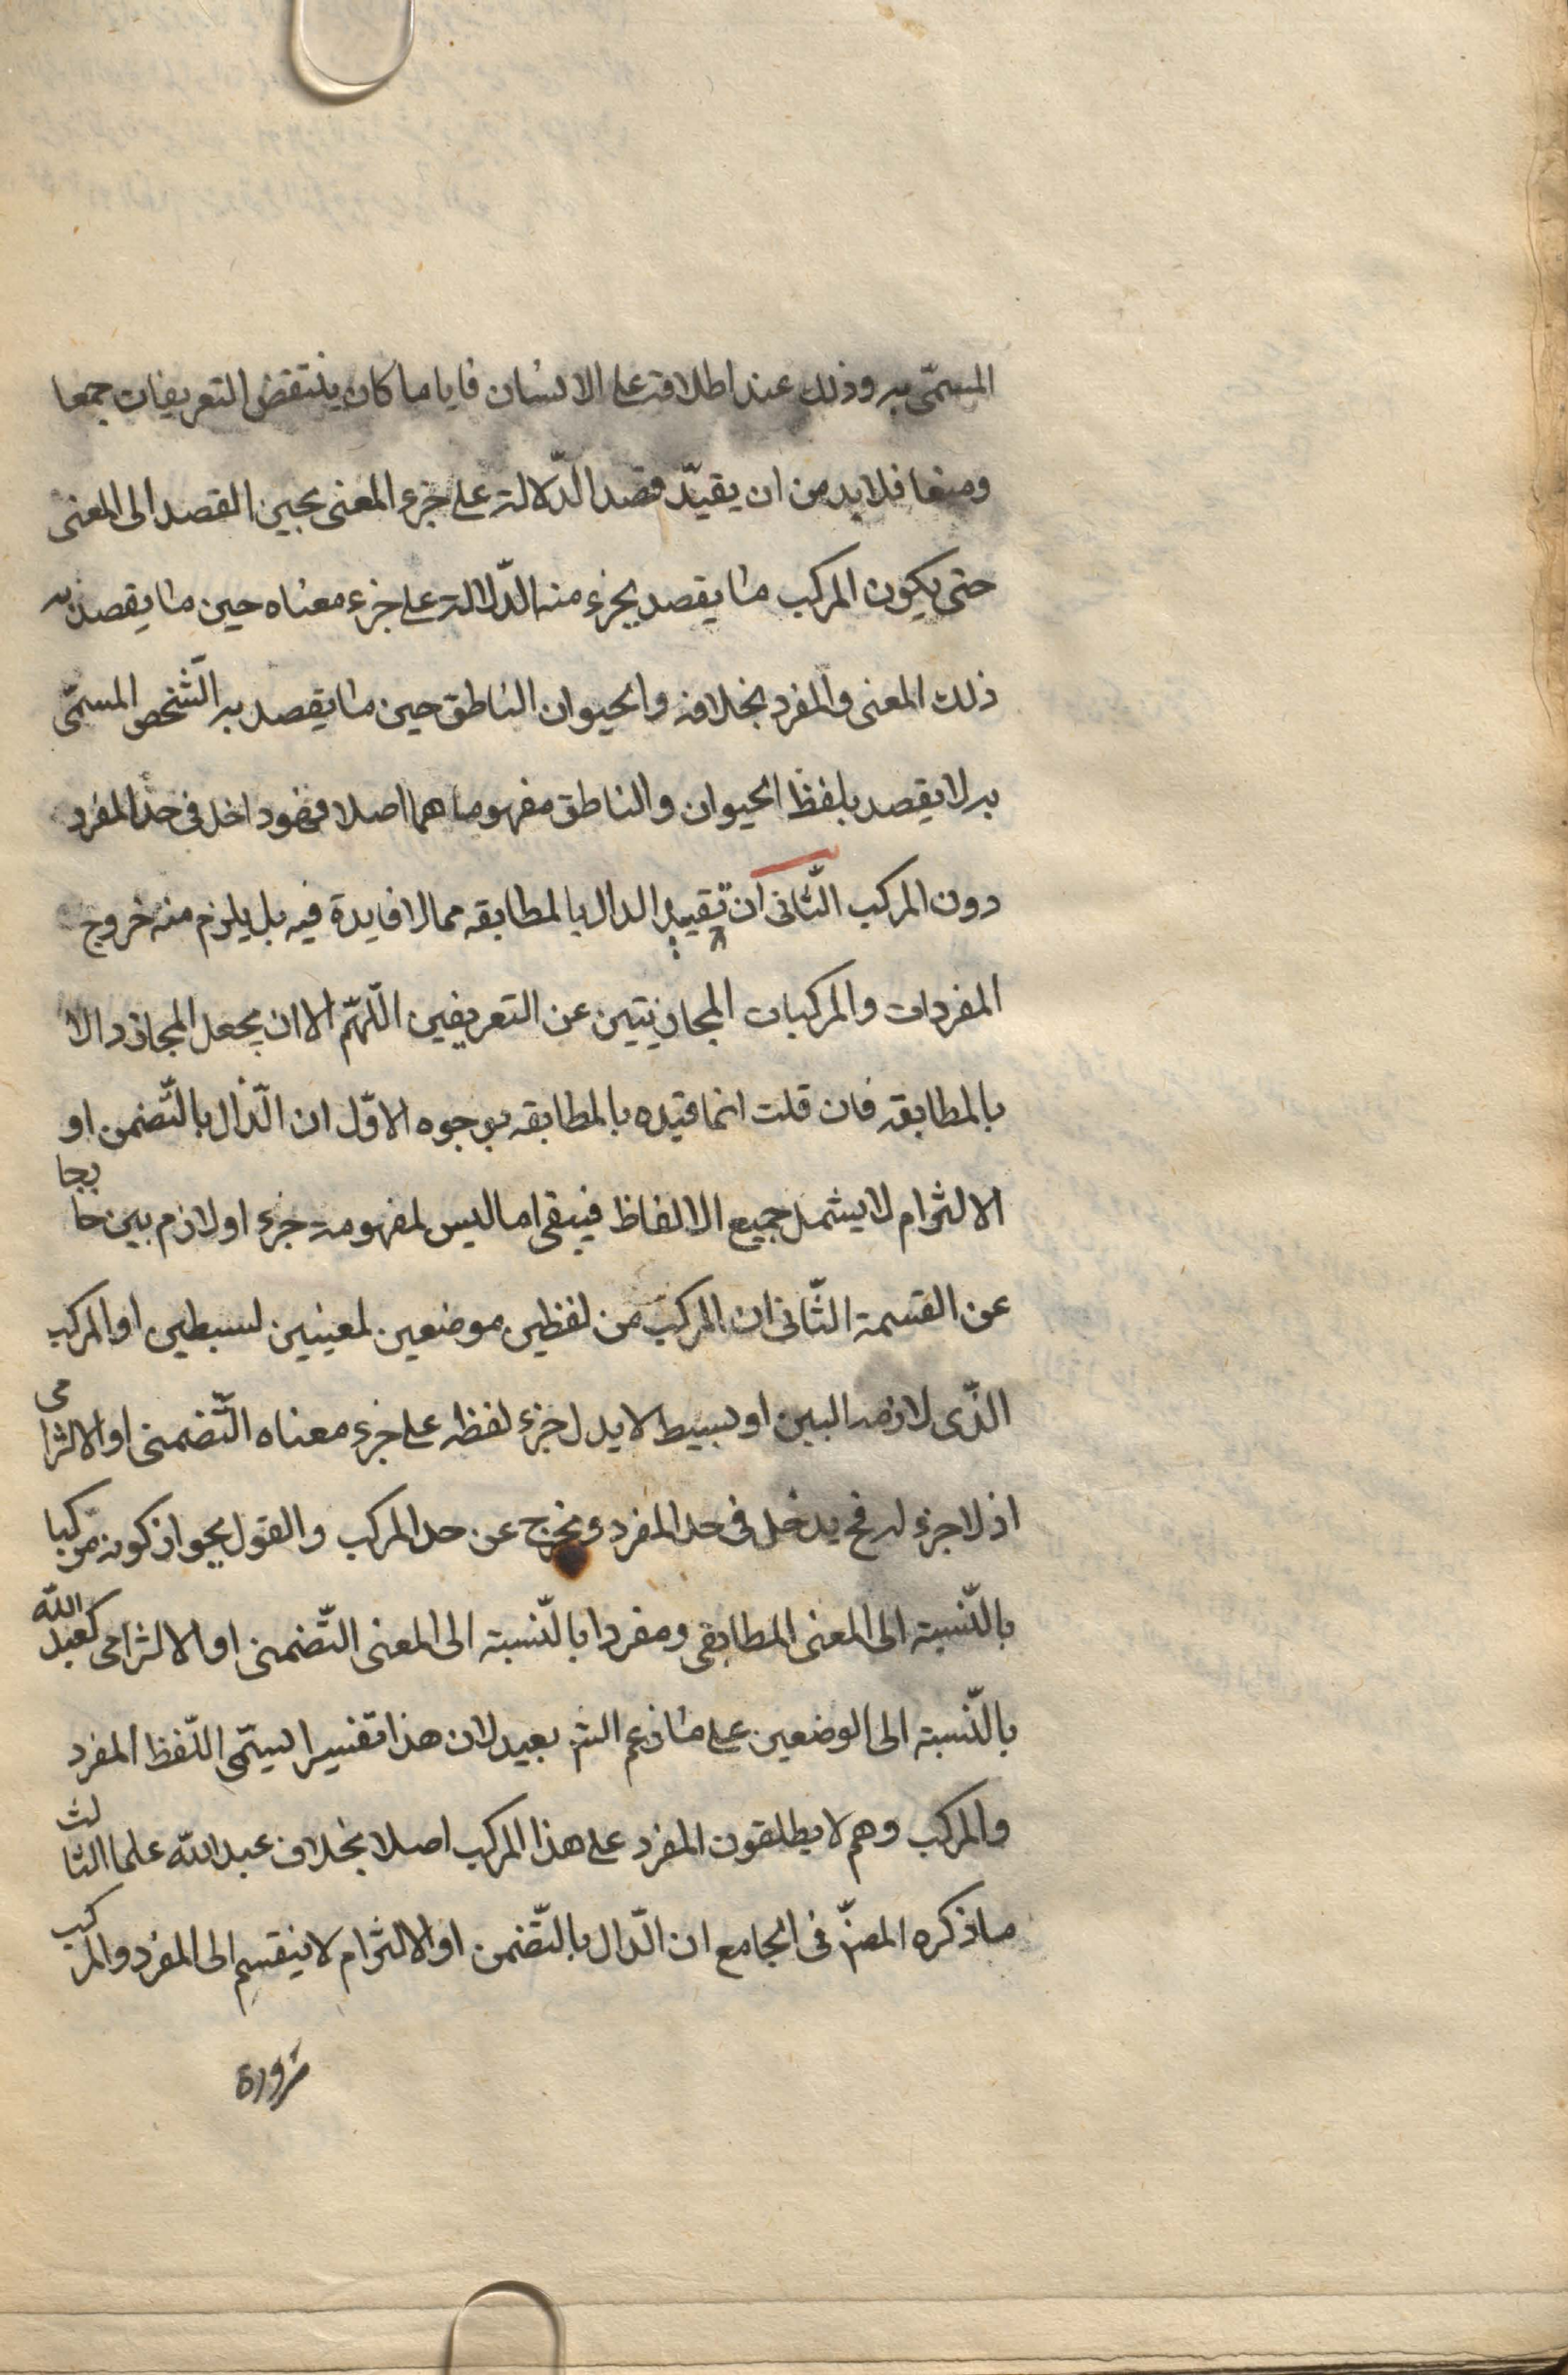 المسمّى به وذلك عند اطلاقه على الانسان فايا ما كان ينتقض التعريفات جمعا
ومنعا فلابد من ان يقيّد قصد الدّلالة على جزء المعنى بحين القصد الى المعنى
حتى يكون المركب ما يقصد بجزء منه الدّلالة على جزء معناه حين ما يقصد به
ذلك المعنى والمفرد بخلافه والحيوان الناطق حين ما يقصد به الشّخص المسمّى
به لا يقصد بلفظ الحيوان والناطق مفهوماهما اصلا فهو داخل فى حدّ المفرد
دون المركب الثّانى ان تقييد الدال بالمطابقه مما لا فايدة فيه بل يلزم منه خروج
المفردات والمركبات المجازيتين عن التعريفين اللّهمّ الا ان يجعل المجاز دالا
بالمطابقة فان قلت انما قيّده بالمطابقه بوجوه الاوّل ان الدّال بالتّضمن او
الالتزام لا يشمل جميع الالفاظ فيبقى ما ليس لمفهومه جزء او لازم بين خارجا
عن القسمة الثّانى ان المركب من لفظين موضعين لمعنيين بسيطين او المركب
الذّى لازمه البين او بسيط لا يدل جزء لفظه على جزء معناه التّضمنى او الالتزامى
اذ لا جزء له فح يدخل فى حد المفرد ويخرج عن حد المركب والقول بجواز كونه مركبا
بالنّسبة الى المعنى المطابقى ومفردا بالنّسبة الى المعنى التّضمنى او الالتزامى كعبد الله
بالنّسبة الى الوضعين على ما زعم الش بعيد لان هذا تفسير لسمّى اللّفظ المفرد
والمركب وهم لا يطلقون المفرد على هذا المركب اصلا بخلاف عبد الله علما الثالث
ما ذكره المصّ فى الجامع ان الدّال بالتّضمن او الالتزام لا ينقسم الى المفرد والمركب
ضرورة